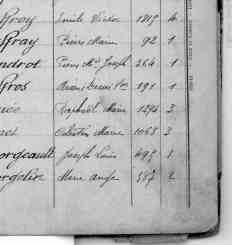 ffroy Emile Victor 1819 4
ffray Pierre Marie 92 1
ndrot Pierre Mie Joseph 264 1
fros 191 1
Raphaël Marie 1294 3
Célestin Marie 1068 3
orgeault Joseph Louis 495 1
orgelin Marie Ange 387 2